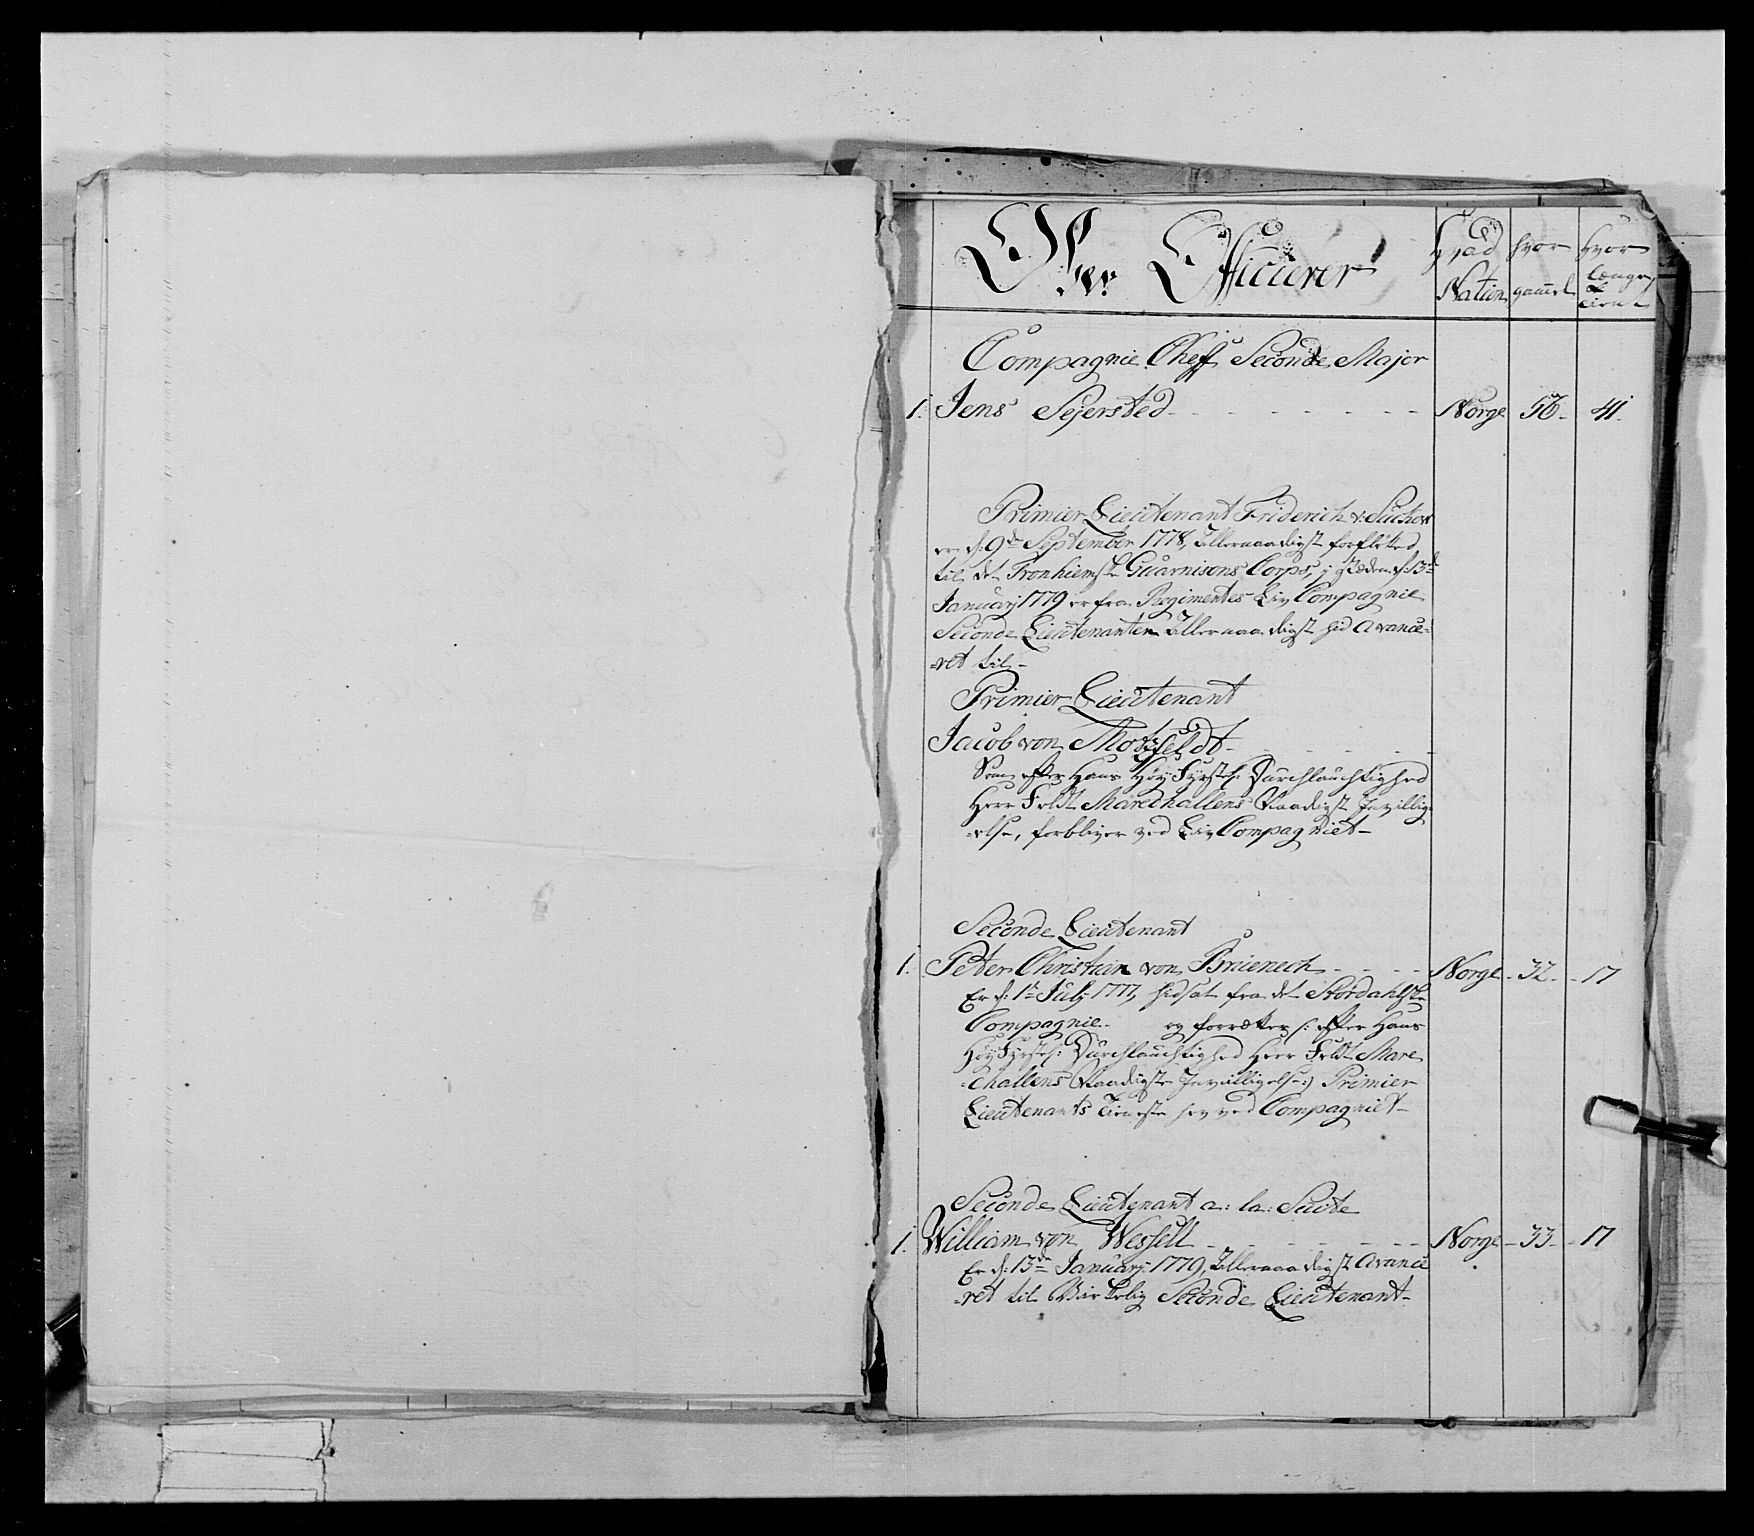 Ober Officierer
Hvad Nation
hvor gammel
Hvor længe tient
Compagnie Cheff Seconde Major
1. Jens Sejersted - Norge 56 - 41
Primier Lieutenant Friderich v: Suckow
er d: 9de September 1778, allernaadigst forflötted
til det Tronhiemske Guarnisons Corps, i d: 13de
Januarj 1779 er fra Regimentes Liv Compagnie
Seconde Lieutenanten allernaadigst hid avance-
-ret til-
Primier Lieutenant
Jacob von Motzfeldt -
Som efter Hans Höy Fyrstel: Durchlauchtighed
Herr Feldt Marechallens Naadigst Invillig-
-else, forbliver ved Liv Compagniet-
Seconde Lieutenant
1. Peter Christian von Brienech - Norge - 32 - 17
Er d: 1te Julj 1777, hidsat fra det Stordahlske
Compagnie. og forretter /: efter Hans
Höy Fyrstel: Durchlauchtighed Herr Feldt Mare-
-challens Naadigste Invilligelse :/ Primier
Lieutenants Tieneste her ved Compagniet-
Seconde Lieutenant a: la: Suite
1. William von Wessell - Norge - 33 - 17
Er d: 13de Januarj 1779, allernaadigst avance
-ret til Virkelig Seconde Lieutenant-